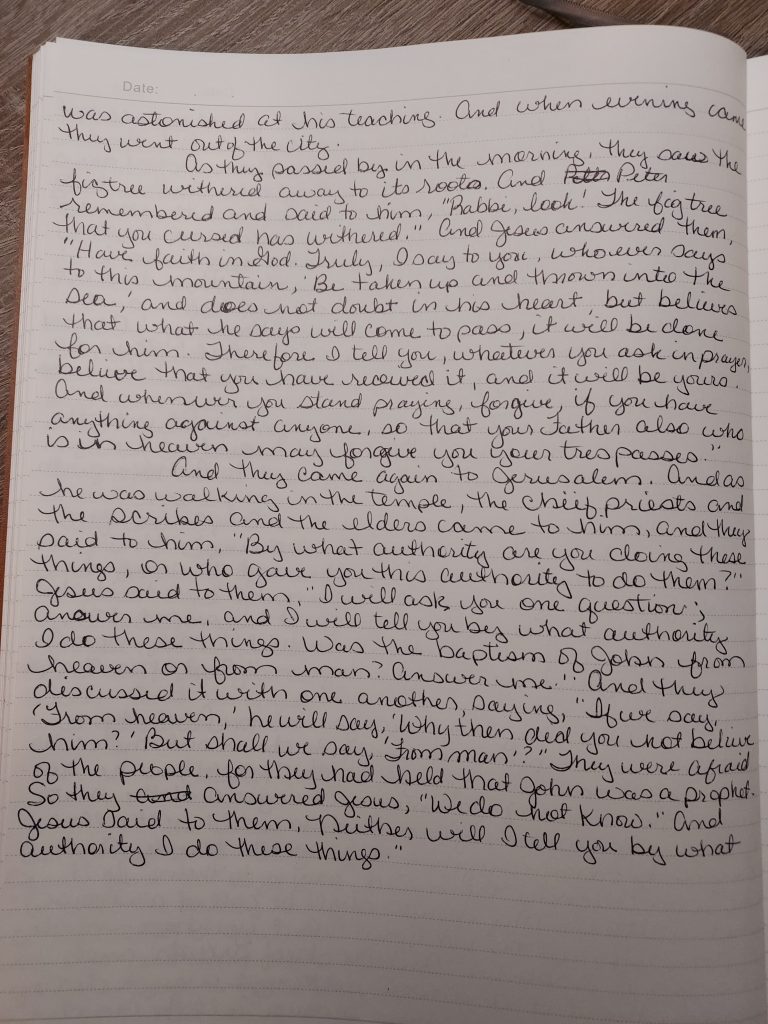 Date:
was astonished at his teaching. And when evening came
they went out of the city.
As they passed by in the morning, they saw the
fig tree withered away to its roots. And Peter Peter
remembered and said to him, "Rabbi, look! The fig tree
that you cursed has withered." And Jesus answered them,
"Have faith in God. Truly, I say to you, whoever says
to this mountain, 'Be taken up and thrown into the
sea,' and does not doubt in his heart, but believes
that what he says will come to pass, it will be done
for him. Therefore I tell you, whatever you ask in prayer,
believe that you have received it, and it will be yours.
And whenever you stand praying, forgive, if you have
anything against anyone, so that your Father also who
is in heaven may forgive you your trespasses."
And they came again to Jerusalem. And as
he was walking in the temple, the chief priests and
the scribes and the elders came to him, and they
said to him, "By what authority are you doing these
things, or who gave you this authority to do them?"
Jesus said to them, "I will ask you one question;
answer me, and I will tell you by what authority
I do these things. Was the baptism of John from
heaven or from man? Answer me." And they
discussed it with one another, saying, "If we say,
'From heaven,' he will say, 'Why then did you not believe
him?' But shall we say, 'From man'?" They were afraid
of the people, for they had held that John was a prophet.
So they and answered Jesus, "We do not know." And
Jesus said to them, Neither will I tell you by what
authority I do these things."